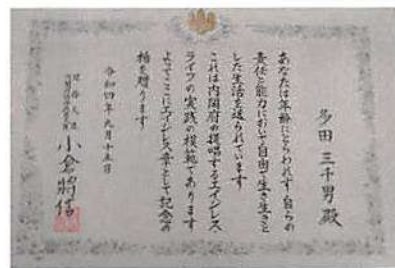 多田三千男殿
あなたは年齢にとらわれず自らの
責任と能力において自由で生き生きと
した生活を送られています
これは内閣府の提唱するエイジレス
ライフの実践の模範であります
よってここにエイジレス章として記念の
楯を贈ります
令和四年九月十五日
小倉將信